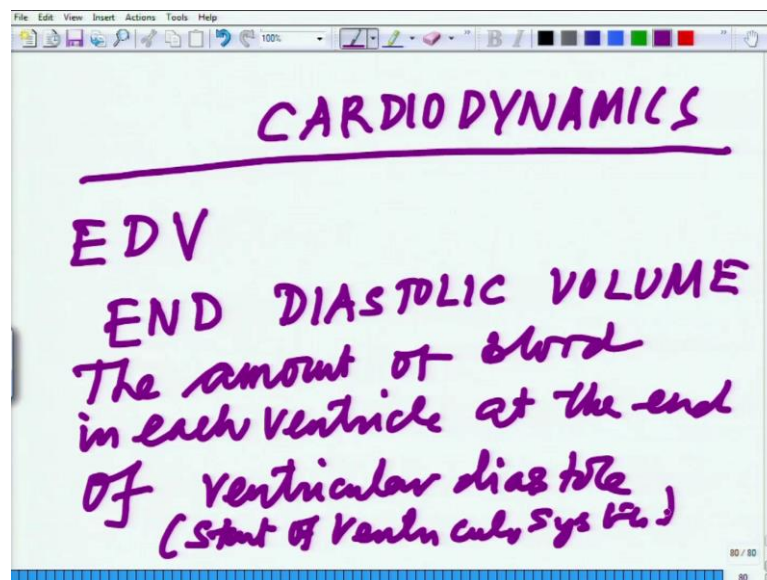 File Edit View Insert Actions Tools Help
100% B I
CARDIODYNAMICS
EDV
END DIASTOLIC VOLUME
The amount of blood
in each ventricle at the end
of ventricular diastole
(Start of
80 / 80
80